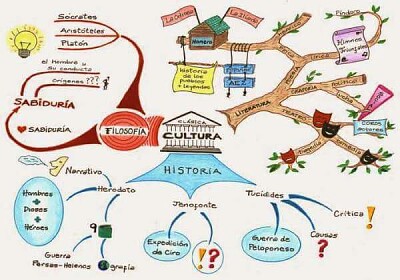 Sócrates
Aristóteles
Platón
el Hombre y
su conducta
Orígenes ???
SABIDURÍA
SABIDURÍA
FILOSOFÍA
CLÁSICA
CULTURA
HISTORIA
LITERATURA
La Odisea
La Ilíada
Homero
Historia
de los
pueblos
+ Leyendas
Píndaro
Himnos
Triunfales
Lírica
TEATRO
Coros
actores
Tragedia
Comedia
Narrativo
Hombres
+
Dioses
+
Héroes
Herodoto
Guerra
Persas-Helenos
grafía
Jenofonte
Expedición
de Ciro
¡?
Tucídides
Guerra de
Peloponeso
Crítica !
Causas
?